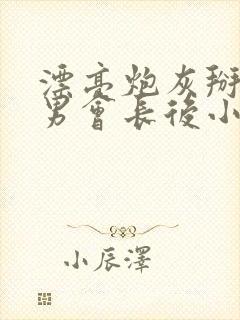 漂亮炮灰掰
男會長後小
小辰澤